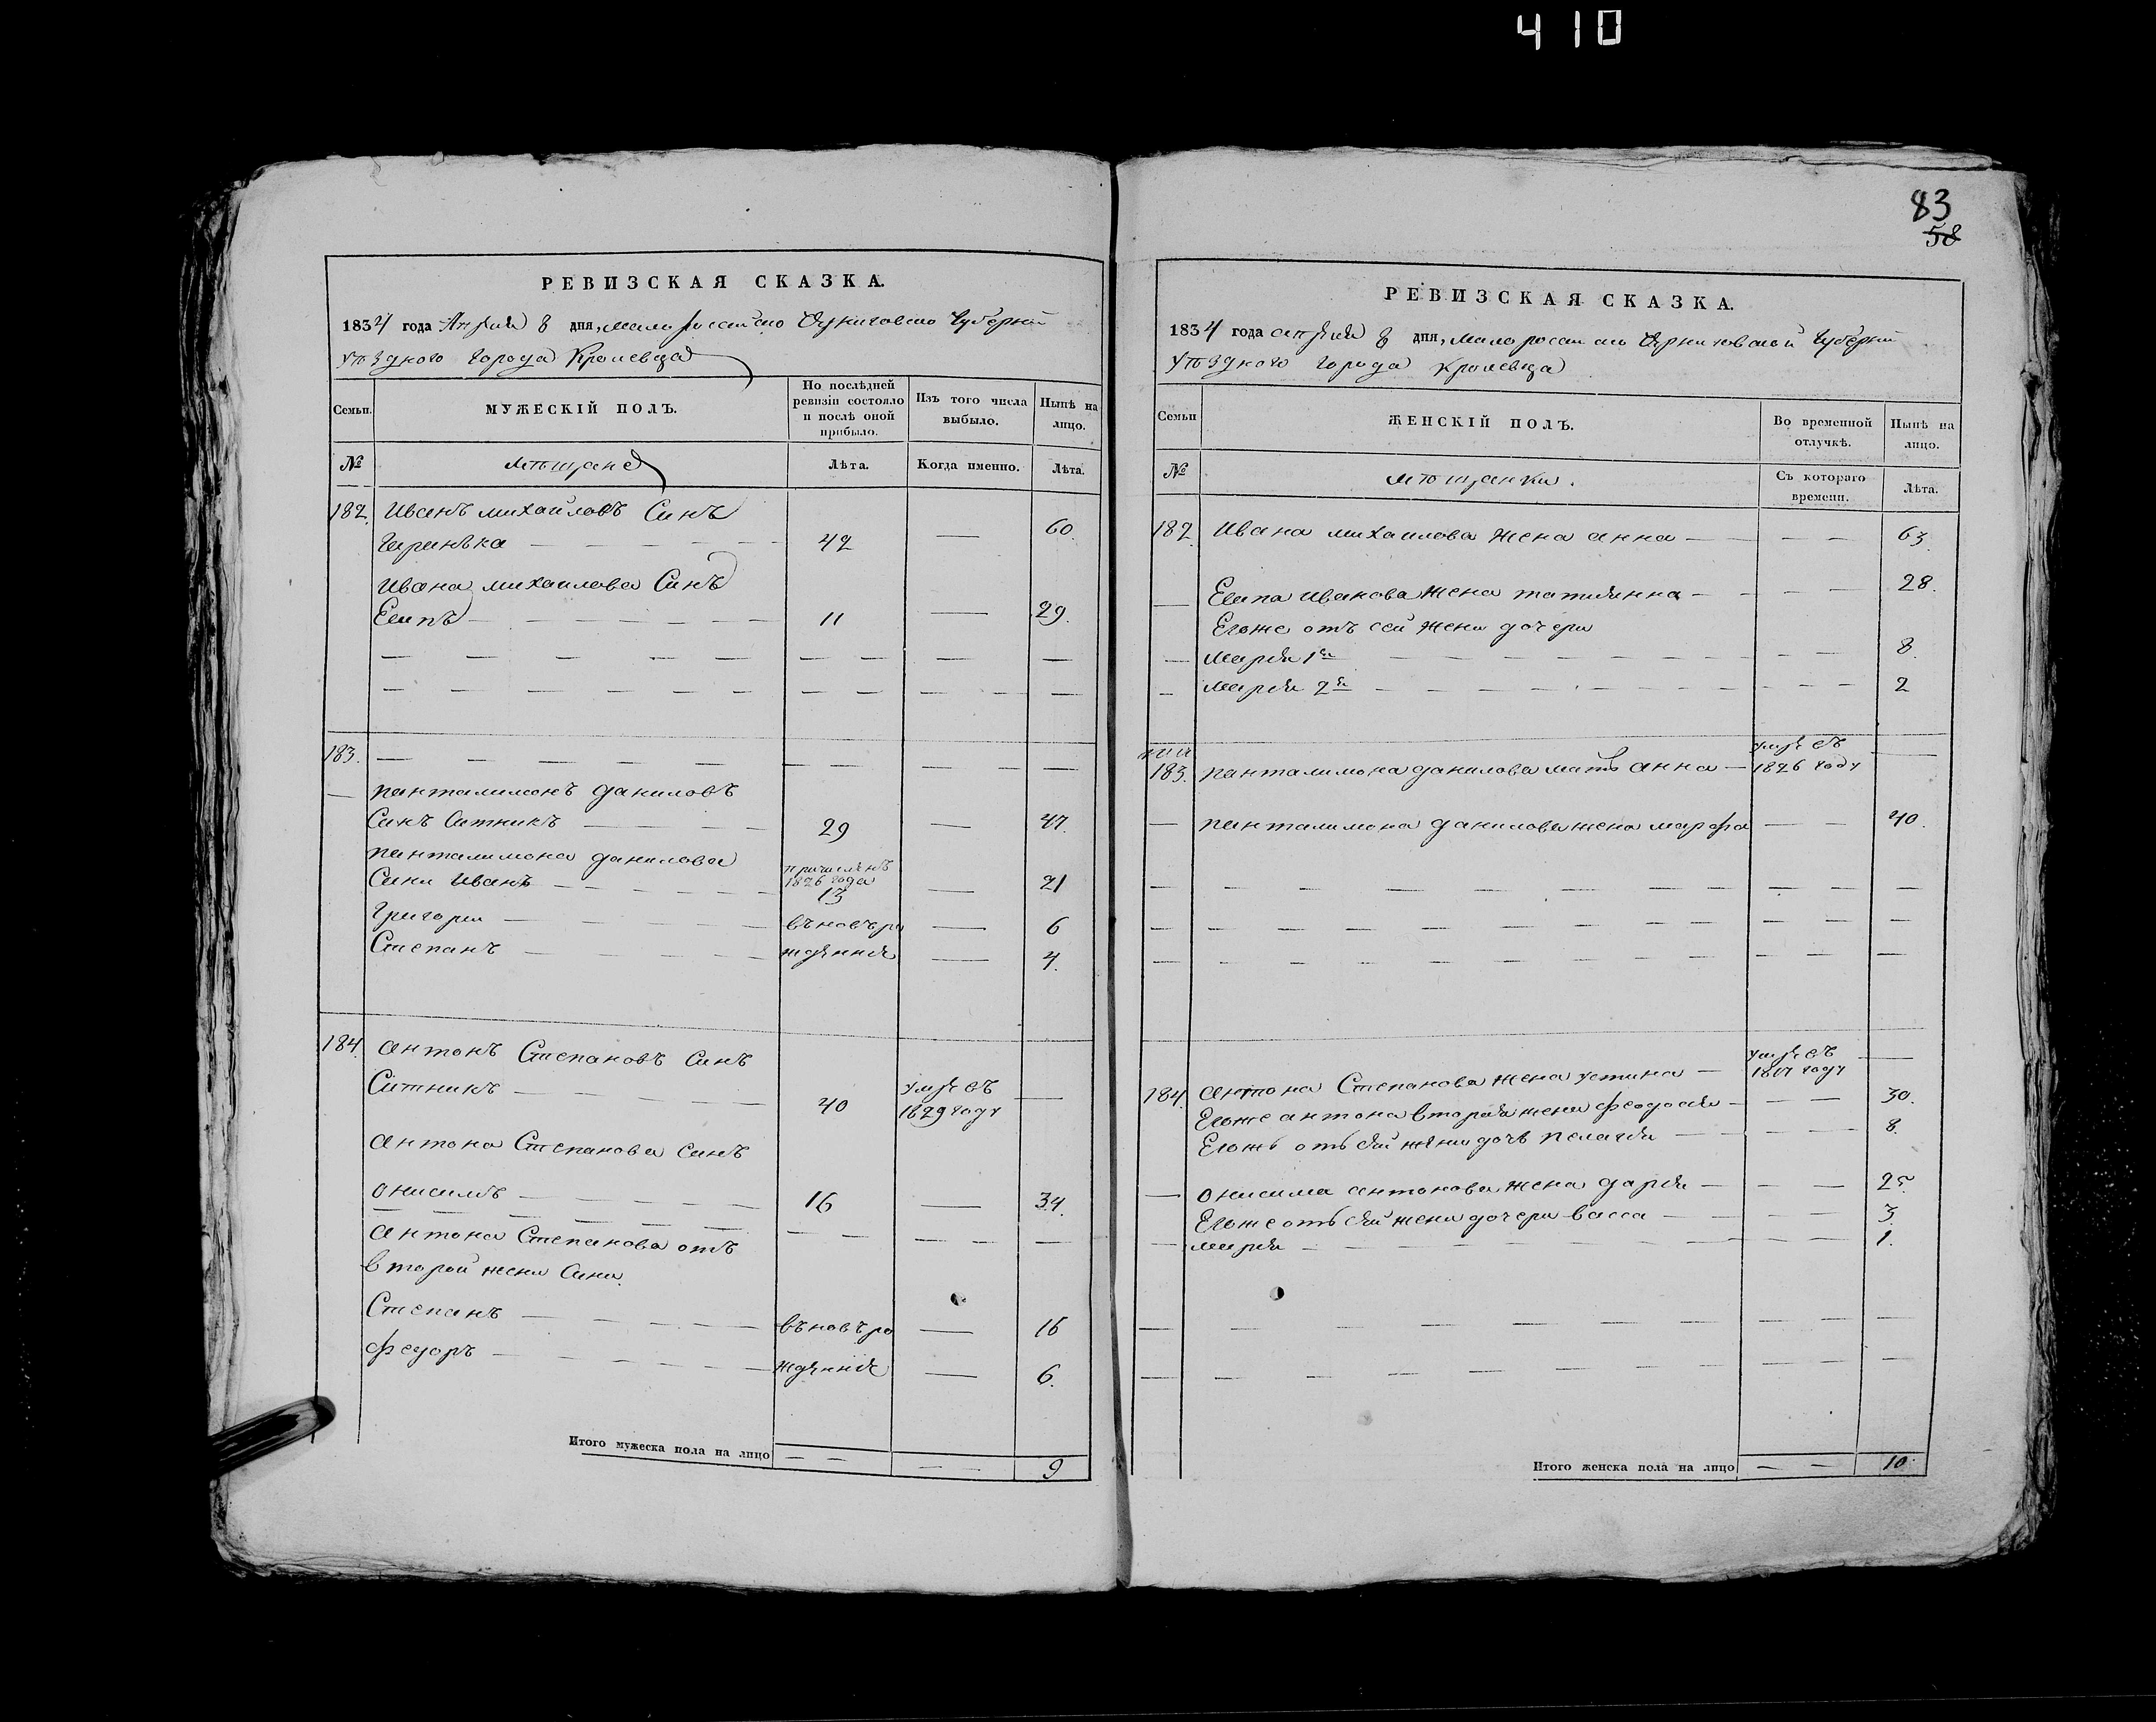 410
83
58
РЕВИЗСКАЯ СКАЗКА.
1834 года Апреля 8 дня, Малороссийско Черниговско Губернии
уѣздного города Кролевца
Семьи.
МУЖЕСКІЙ ПОЛЪ.
По послѣдней ревизіи состояло и послѣ оной прибыло.
Изъ того числа выбыло.
Нынѣ на лицо.
№
мѣщане
Лѣта.
Когда именно.
Лѣта.
182. Иванъ михайловъ Синъ 60.
42 —
Ивана михаилова Синъ
Есипъ 11 — 29.
183.
панталимонъ даниловъ
Синъ Ситникъ 29 — 47.
панталимона данилова
Сини Иванъ причисленъ 1826 года 13 — 21
Григори въновъро — 6
Степанъ жденние — 4.
184. антонъ Степановъ Синъ
Ситникъ 40 умре въ 1829 году —
антона Степанова синъ
онисимъ 16 — 34.
антона Степанова отъ
второй жени Сини.
Степанъ въновъро — 16
федоръ жденние — 6.
Итого мужеска пола на лицо 9
РЕВИЗСКАЯ СКАЗКА.
1834 года апреля 8 дня, малоросийско Черниговской Губернии
уѣздного города Кролевца
Семьи
ЖЕНСКІЙ ПОЛЪ.
Во временной отлучкѣ.
Нынѣ на лицо.
№
мѣщанки.
Съ котораго времени.
Лѣта.
182. Ивана михаилова жена анна 63.
Есипа иванова жена татиянна 28.
Егоже отъ сей жени дочери
Мария 1я 8.
мария 2я 2
183. панталимона данилова мать анна умре въ 1826 году
панталимона данилова жена марфа 40.
184. антона Степанова жена устина умре въ 1817 году
Егоже антона вторая жена феодосия 30.
Егожъ отъ сей жени дочь пелагия 8.
онисима антонова жена дария 25.
Егоже отъ сей жени дочери васса 3.
мария 1.
Итого женска пола на лицо 10